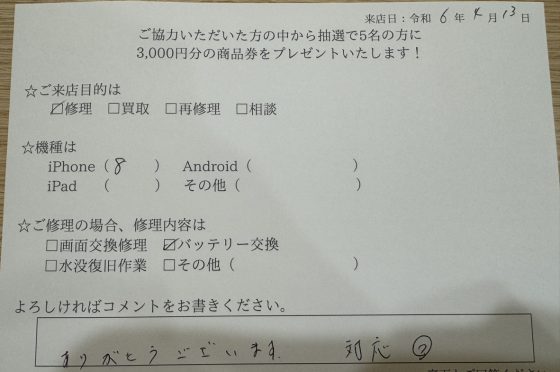 来店日：令和 6 年 4 月 13 日
ご協力いただいた方の中から抽選で5名の方に
3,000円分の商品券をプレゼントいたします！
☆ご来店目的は
☑修理 □買取 □再修理 □相談
☆機種は
iPhone（8 ） Android（ ）
iPad （ ） その他（ ）
☆ご修理の場合、修理内容は
□画面交換修理 ☑バッテリー交換
□水没復旧作業 □その他（ ）
よろしければコメントをお書きください。
ありがとうございます 対応